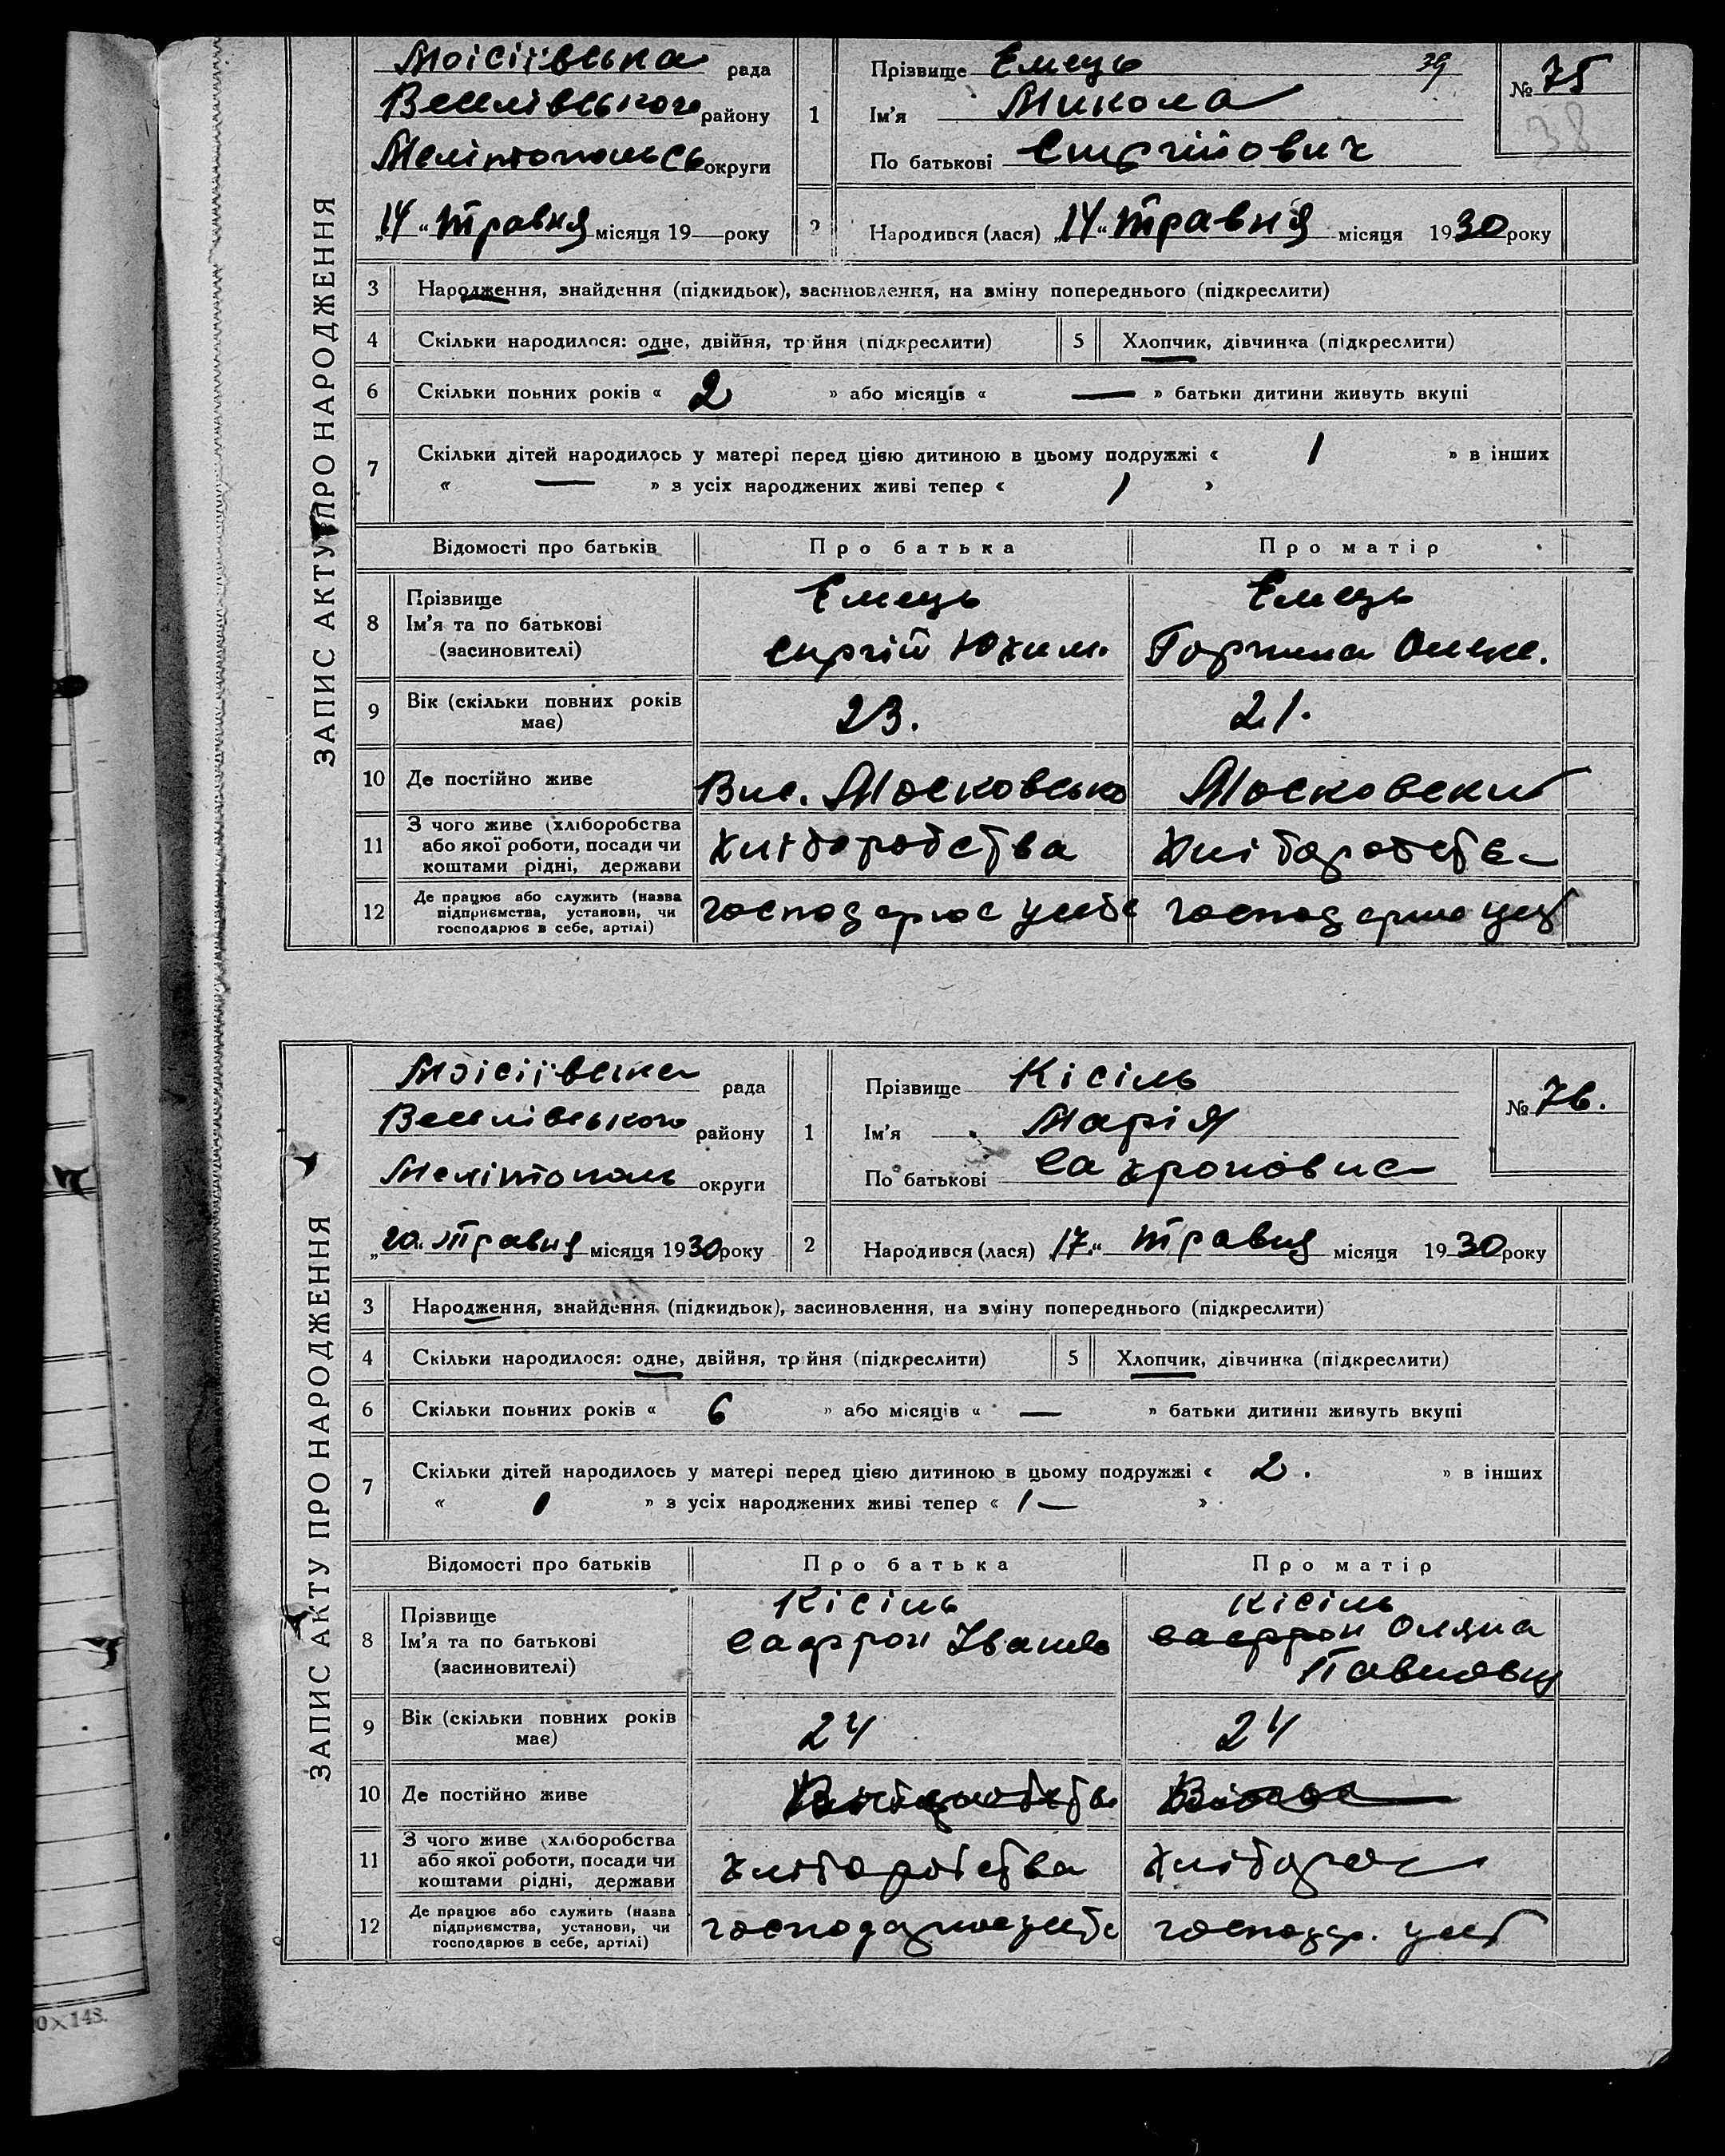 Моісіївська рада
Веселівського району
Меліпопольсь округи
„14“ травня місяця 19 — року
1
Прізвище Емець 39
Ім'я Микола
По батькові Сиргійович
№ 75
38
2
Народився (лася) „14“ травня місяця 1930 року
ЗАПИС АКТУ ПРО НАРОДЖЕННЯ
3 Народження, знайдення (підкидьок), засиновлення, на зміну попереднього (підкреслити)
4 Скільки народилося: одне, двійня, трійня (підкреслити)
5 Хлопчик, дівчинка (підкреслити)
6 Скільки повних років « 2 » або місяців « — » батьки дитини живуть вкупі
7 Скільки дітей народилось у матері перед цією дитиною в цьому подружжі « 1 » в інших
« — » з усіх народжених живі тепер « 1 »
Відомості про батьків Про батька Про матір
8 Прізвище
Ім'я та по батькові
(засиновителі)
Емець
Сиргій Юхим.
Емець
Горпина
9 Вік (скільки повних років
має)
23. 21.
10 Де постійно живе Вис. Московсько
11 З чого живе (хліборобства
або якої роботи, посади чи
коштами рідні, держави
хліборобства
12 Де працює або служить (назва
підприємства, установи, чи
господарює в себе, артілі)
господарює усебе
Моісіївська рада
Веселівського району
Меліпополь округи
„20. травня місяця 1930 року
1
Прізвище Кісіль
Ім'я Марія
По батькові
№ 76.
2
Народився (лася) 17.“ травня місяця 1930 року
ЗАПИС АКТУ ПРО НАРОДЖЕННЯ
3 Народження, знайдення (підкидьок), засиновлення, на зміну попереднього (підкреслити)
4 Скільки народилося: одне, двійня, трійня (підкреслити)
5 Хлопчик, дівчинка (підкреслити)
6 Скільки повних років « 6 » або місяців « — » батьки дитини живуть вкупі
7 Скільки дітей народилось у матері перед цією дитиною в цьому подружжі « 2. » в інших
« 1 » з усіх народжених живі тепер « 1 — »
Відомості про батьків Про батька Про матір
8 Прізвище
Ім'я та по батькові
(засиновителі)
Кісіль
Сафрон
Кісіль
Сафрон Оляна
Павловна
9 Вік (скільки повних років
має)
24 24
10 Де постійно живе
11 З чого живе (хліборобства
або якої роботи, посади чи
коштами рідні, держави
хліборобства
12 Де працює або служить (назва
підприємства, установи, чи
господарює в себе, артілі)
господарює усебе господар. усеб
0×148.